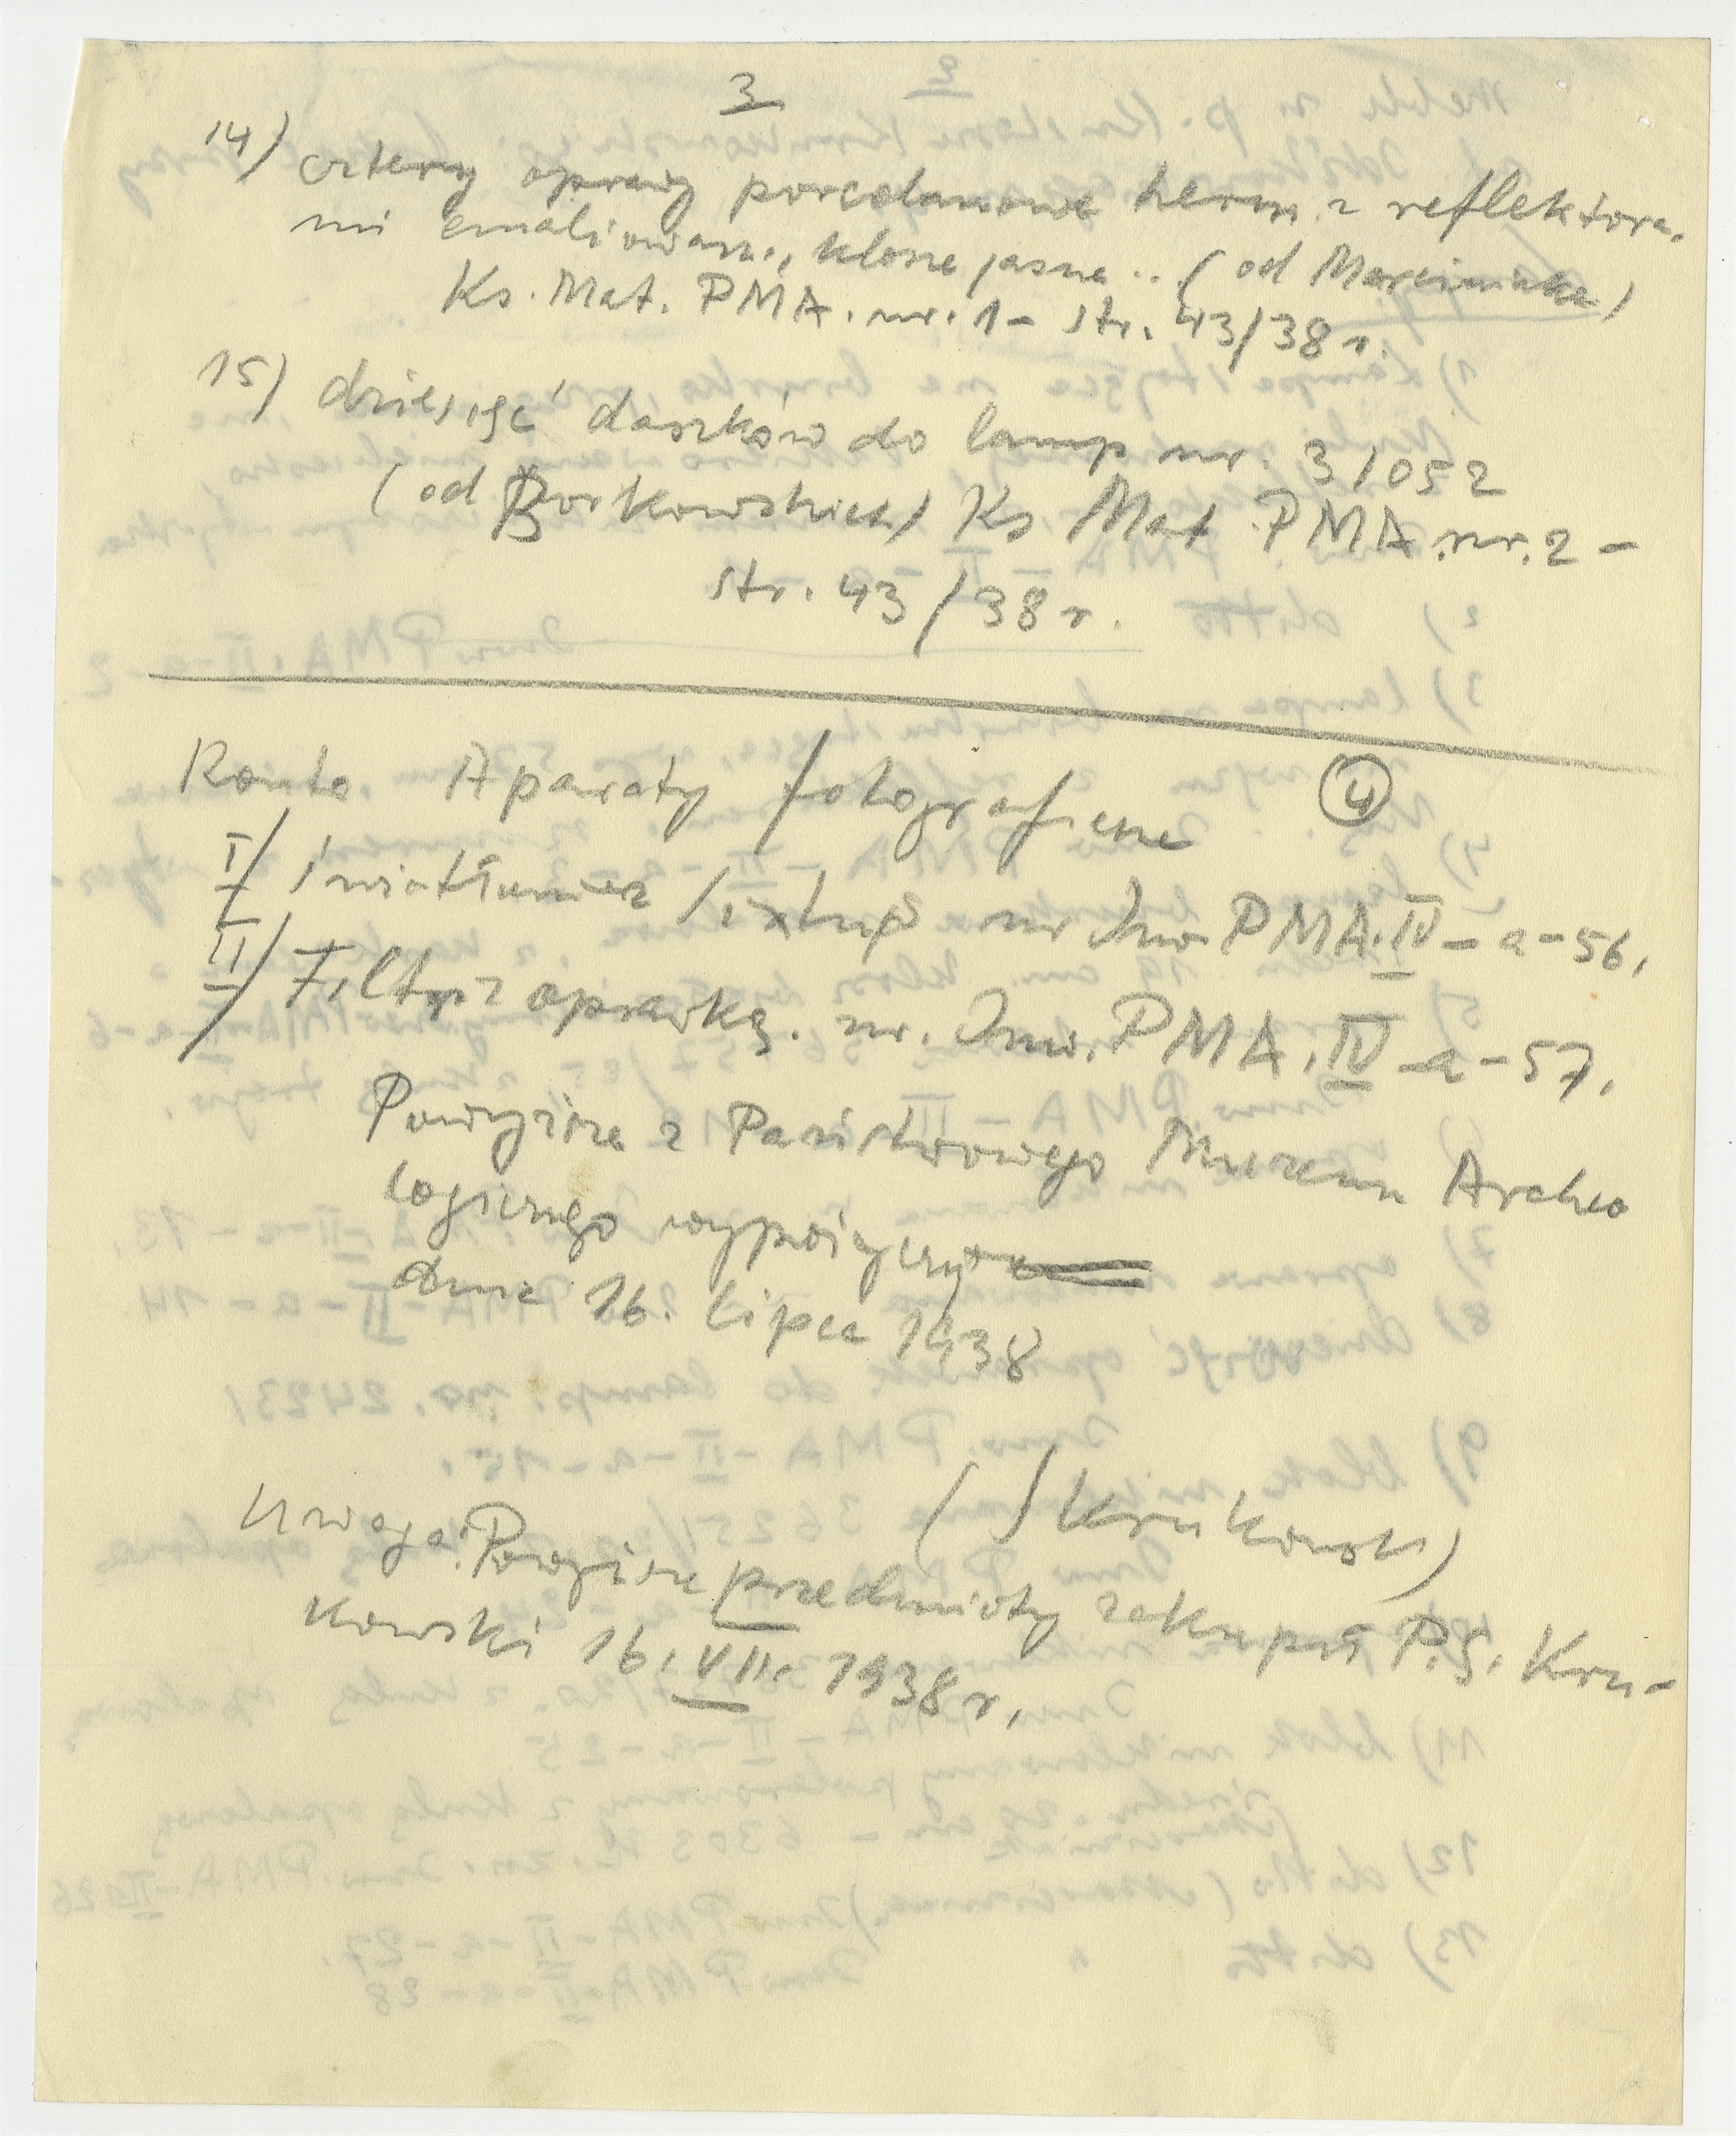 3
14) cztery oprawy porcelanowe herm. z reflektora-
mi emaliowan., klosze jasne .. (od Marciniaka)
Ks. Mat. PMA. nr. 1 - str. 43/38 r.
15) dziesięć daszków do lamp nr. 31052
(od Borkowskich) Ks Mat. PMA. nr. 2 -
str. 43/38 r.
Konto Aparaty fotograficzne 4
I/ światłomierz Sixtus nr Inw. PMA. IV - a - 56.
II/ Filtr z oprawką. nr. Inw. PMA. IV - a - 57.
Powyższe z Państwowego Muzeum Archeo
logicznego wypożyczy
dnia 16. lipca 1938
(S Krukowski)
Uwaga: Powyższe przedmioty zakupił P. S. Kru-
kowski 16. VII. 1938 r.